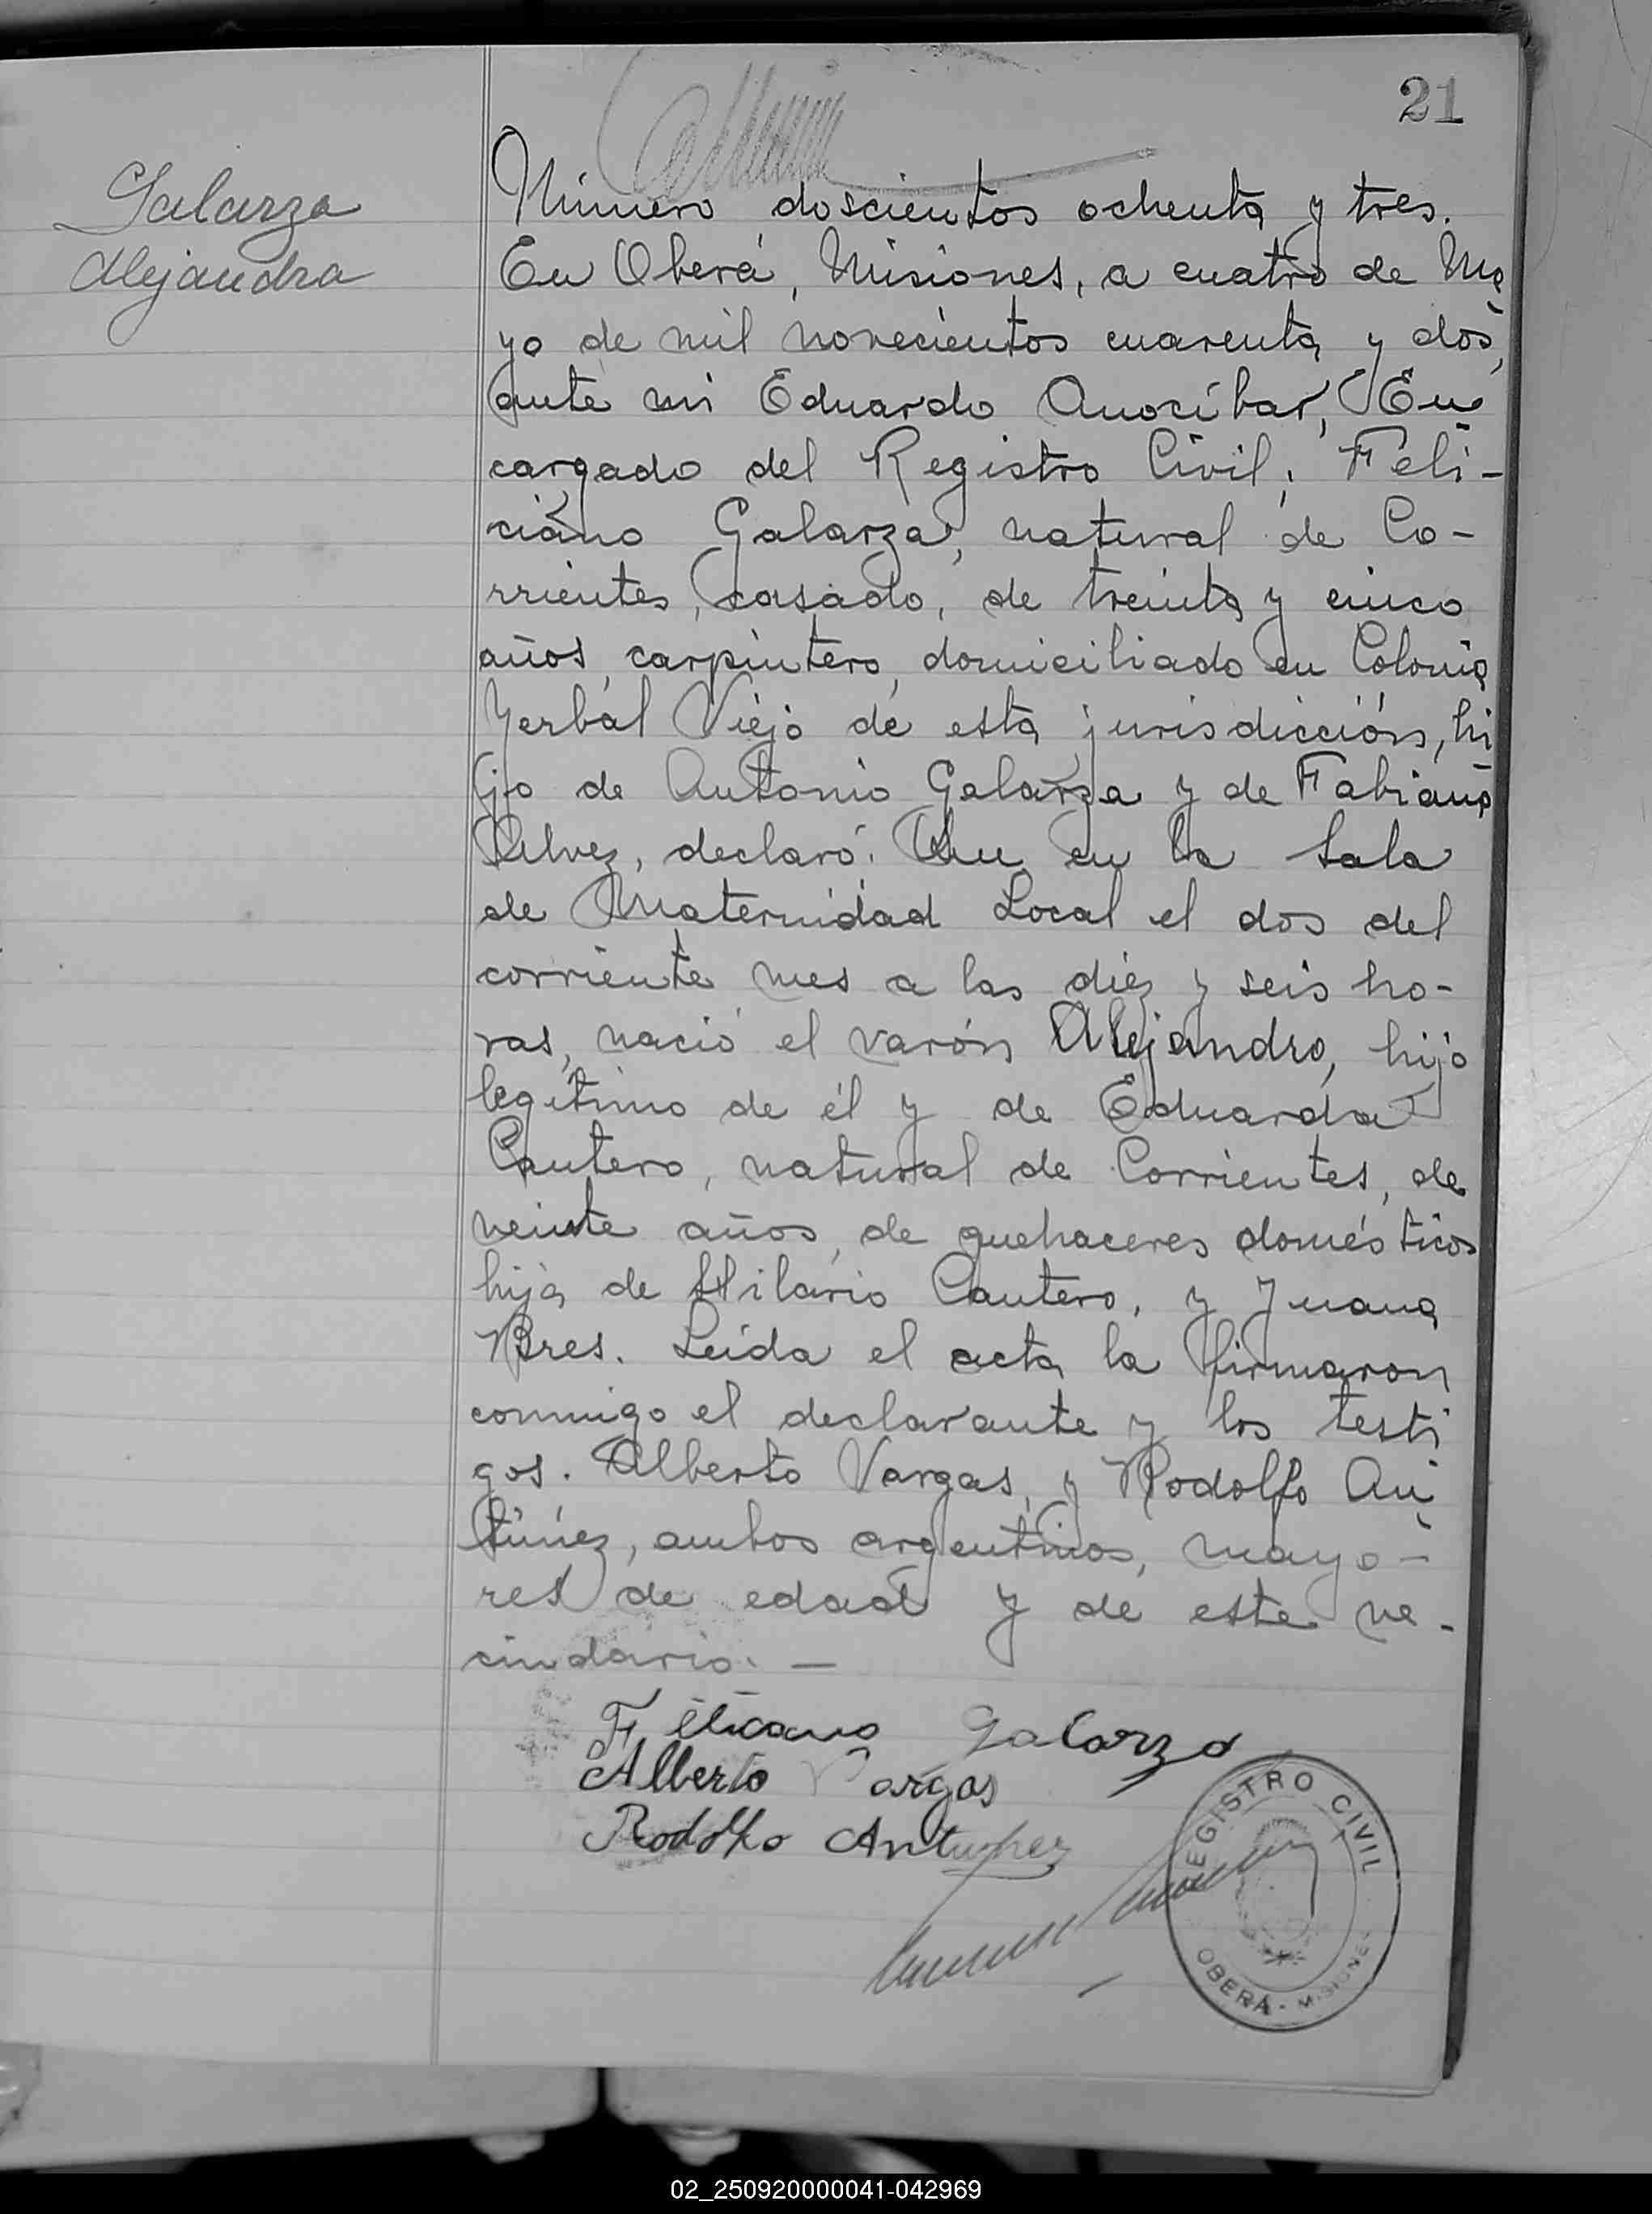 21
Galarza
Alejandra
Número doscientos ochenta y tres.
En Oberá, Misiones, a cuatro de Ma
yo de mil novecientos cuarenta y dos,
ante mi Eduardo Anocíbar, En
cargado del Registro Civil; Feli-
ciano Galarza, natural de Co-
rrientes, casado, de treinta y cinco
años, carpintero, domiciliado en Colonia
Yerbal Viejo de esta jurisdicción, hi
jo de Antonio Galarza y de Fabiana
Alvez, declaró: Que en la Sala
de Maternidad Local el dos del
corriente mes a las diez y seis ho-
ras, nació el varón Alejandro, hijo
legítimo de él y de Eduarda
Cantero, natural de Corrientes, de
veinte años, de quehaceres domésticos
hija de Hilario Cantero, y Juana
Bres. Leída el acta la firmaron
conmigo el declarante y los testi
gos. Alberto Vargas, y Rodolfo An
túnez, ambos argentinos, mayo-
res de edad y de este ve-
cindario. —
Felicano Galarza
Alberto Vargas
Rodolfo Antunez
REGISTRO CIVIL
OBERÁ - MISIONES
02_250920000041-042969